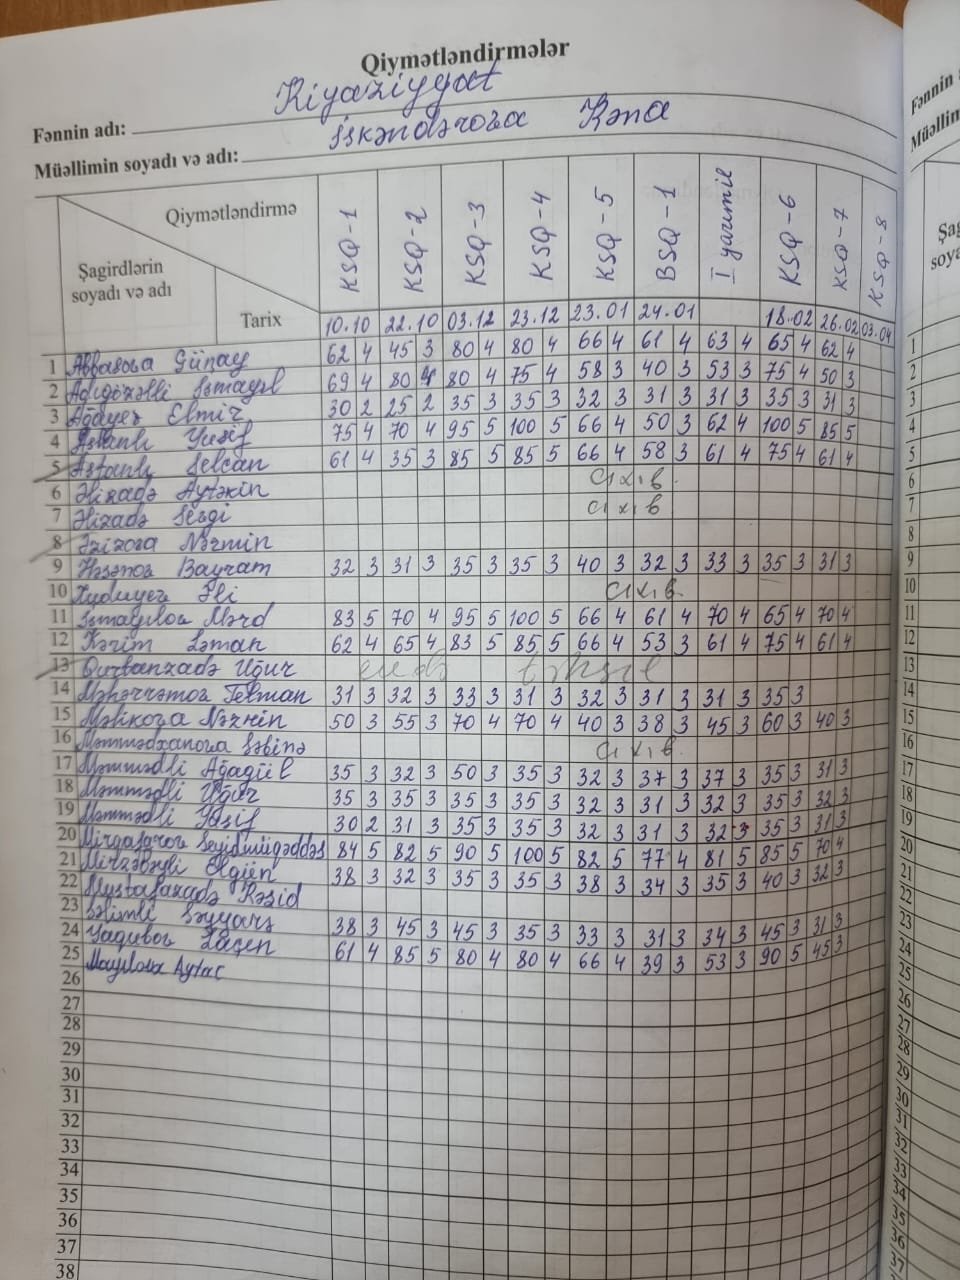 Qiymətləndirmələr
Fənnin adı: Riyaziyyat
Müəllimin soyadı və adı: İskəndərova Rəna
Qiymətləndirmə KSQ-1 KSQ-2 KSQ-3 KSQ-4 KSQ-5 BSQ-1 I yarımil KSQ-6 KSQ-7 KSQ-8
Şagirdlərin soyadı və adı
Tarix 10.10 22.10 03.12 23.12 23.01 24.01 18.02 26.02 03.04
1 Abbasova Günay 62 4 45 3 80 4 80 4 66 4 61 4 63 4 65 4 62 4
2 Adıgözəlli İsmayıl 69 4 80 4 80 4 75 4 58 3 40 3 53 3 75 4 50 3
3 Ağayev Elmir 30 2 25 2 35 3 35 3 32 3 31 3 31 3 35 3 31 3
4 Aslanlı Yusif 75 4 70 4 95 5 100 5 66 4 50 3 62 4 100 5 85 5
5 Aslanlı Selcan 61 4 35 3 85 5 85 5 66 4 58 3 61 4 75 4 61 4
6 Əlizadə Aytəkin çıxıb
7 Əlizadə Sevgi çıxıb
8 Əzizova Nərmin
9 Həsənov Bayram 32 3 31 3 35 3 35 3 40 3 32 3 33 3 35 3 31 3
10 Xuduyev Əli çıxıb
11 İsmayılov Mərd 83 5 70 4 95 5 100 5 66 4 61 4 70 4 65 4 70 4
12 Kərim Ləman 62 4 65 4 83 5 85 5 66 4 53 3 61 4 75 4 61 4
13 Qurbanzadə Uğur evdə təhsil
14 Məhərrəmov Telman 31 3 32 3 33 3 31 3 32 3 31 3 31 3 35 3
15 Məlikova Nərmin 50 3 55 3 70 4 70 4 40 3 38 3 45 3 60 3 40 3
16 Məmmədxanova Səbinə çıxıb
17 Məmmədli Ağagül 35 3 32 3 50 3 35 3 32 3 37 3 37 3 35 3 31 3
18 Məmmədli Uğur 35 3 35 3 35 3 35 3 32 3 31 3 32 3 35 3 32 3
19 Məmmədli Yusif 30 2 31 3 35 3 35 3 32 3 31 3 32 3 35 3 31 3
20 Mirqafarov Seyidmüqəddəs 84 5 82 5 90 5 100 5 82 5 77 4 81 5 85 5 70 4
21 Mirzəbəyli Elgün 38 3 32 3 35 3 35 3 38 3 34 3 35 3 40 3 32 3
22 Mustafazadə Rəşid
23 Səlimli Səyyarə 38 3 45 3 45 3 35 3 33 3 31 3 34 3 45 3 31 3
24 Yaqubov Laçın 61 4 85 5 80 4 80 4 66 4 39 3 53 3 90 5 45 3
25 Aytac
26
27
28
29
30
31
32
33
34
35
36
37
38
Fənnin
Müəllim
Şag
soya
1
2
3
4
5
6
7
8
9
10
11
12
13
14
15
16
17
18
19
20
21
22
23
24
25
26
27
28
29
30
31
32
33
34
35
36
37